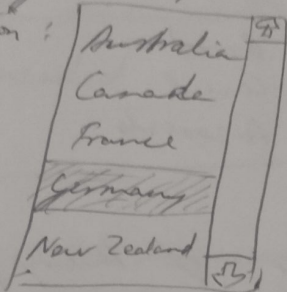 Australia
Canada
France
Germany
New Zealand